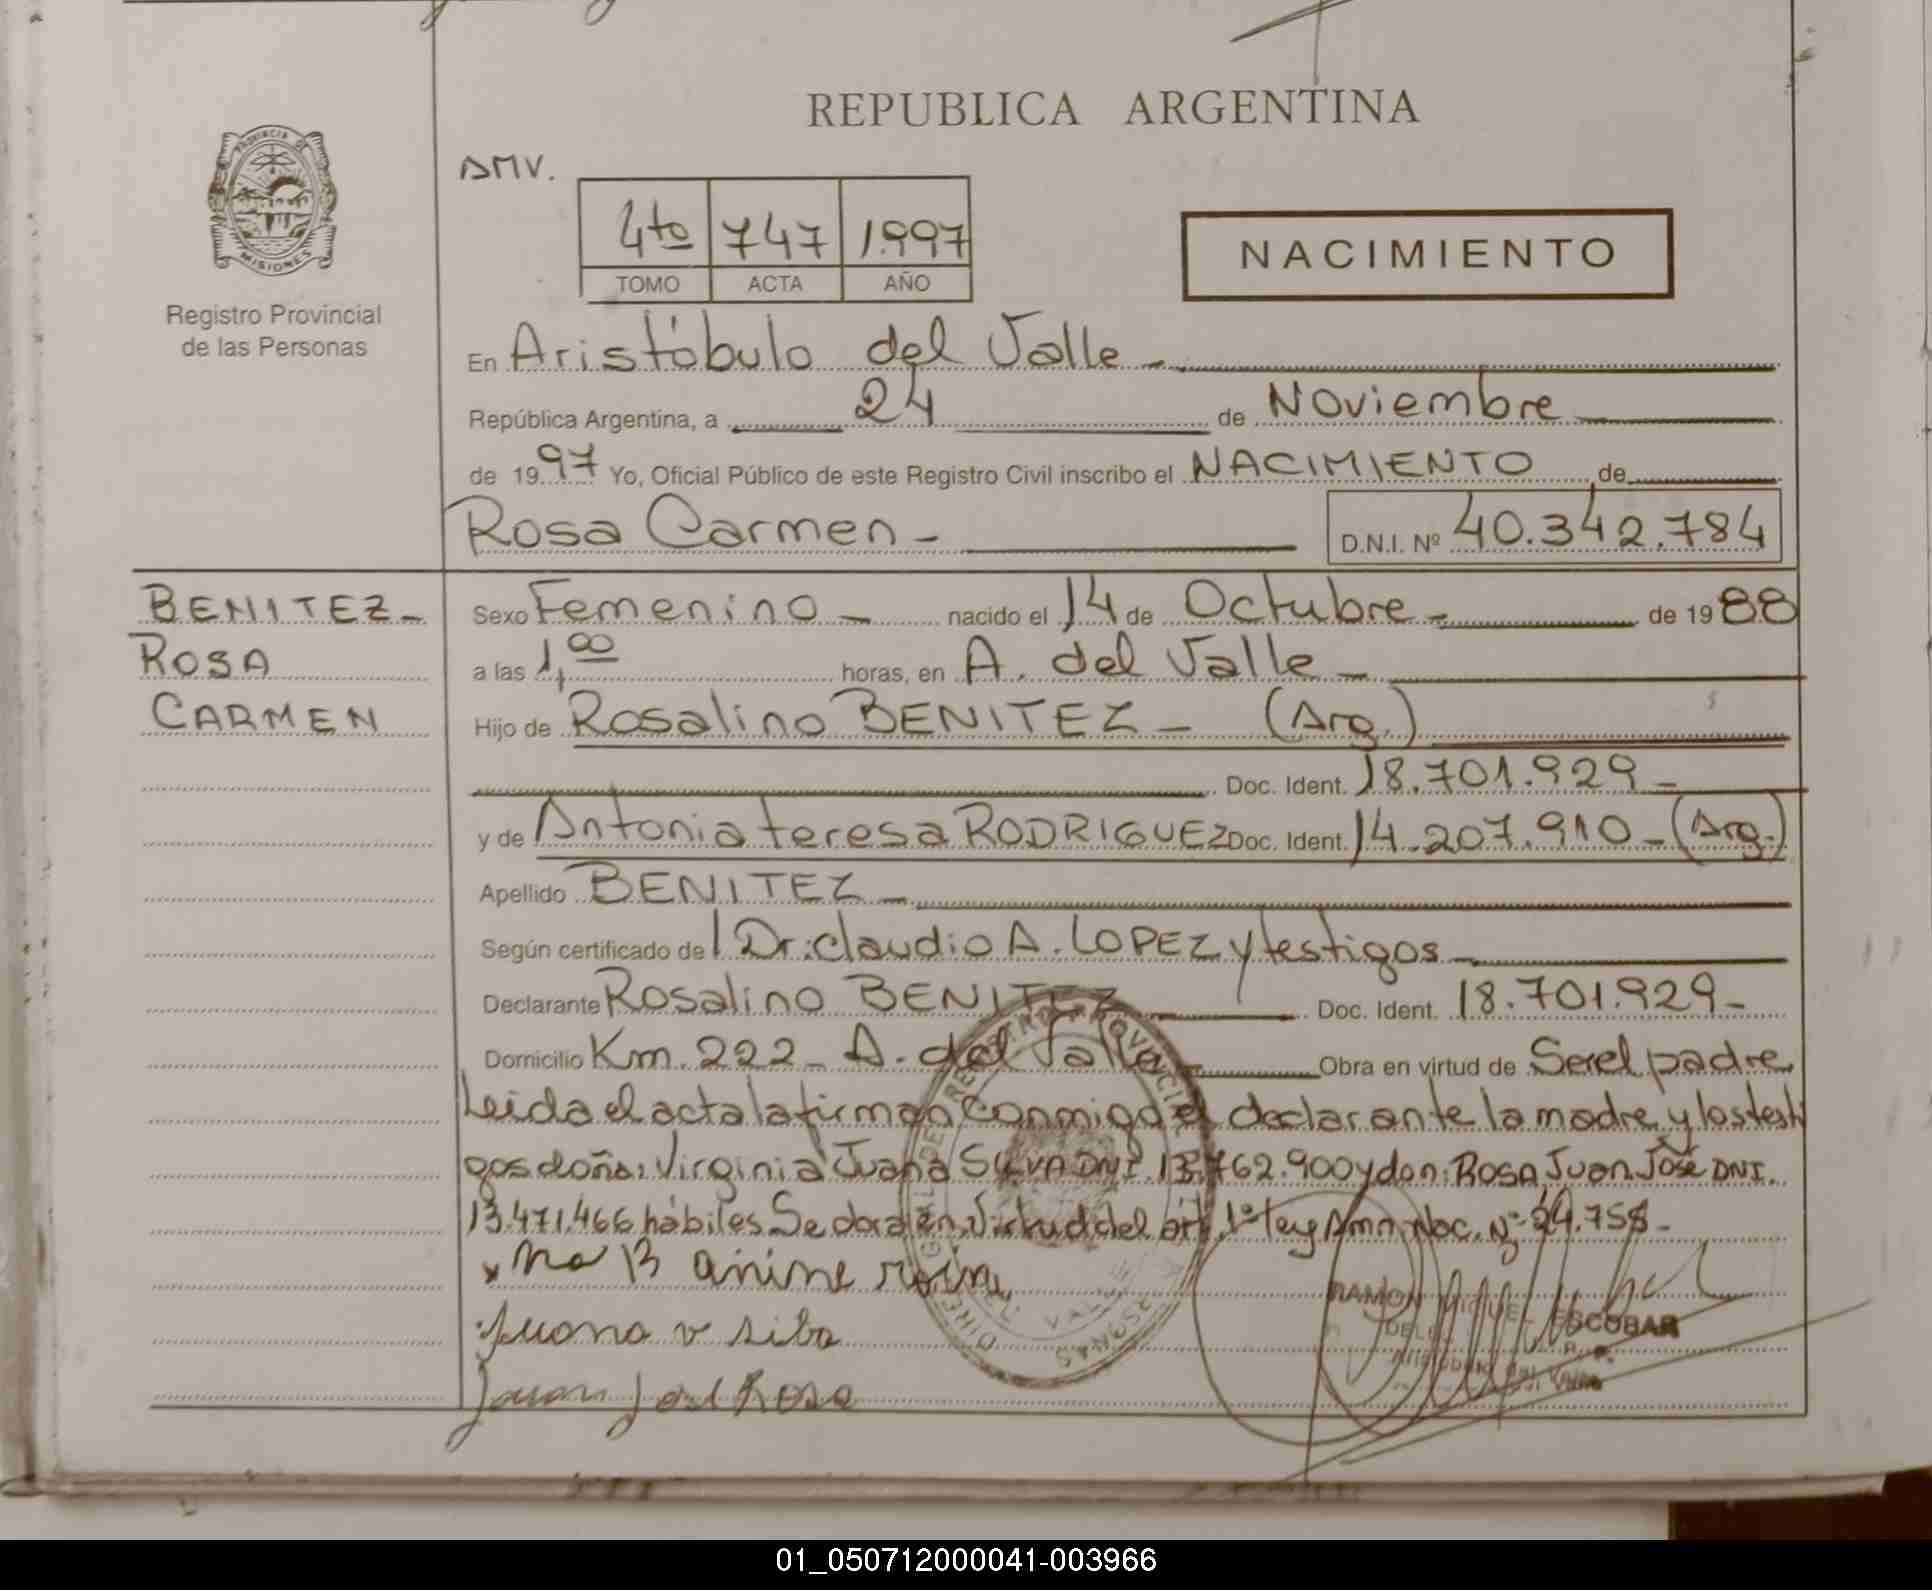 REPUBLICA ARGENTINA
PROVINCIA DE MISIONES
Registro Provincial
de las Personas
AMV.
4to 747 1.997
TOMO ACTA AÑO
NACIMIENTO
En Aristóbulo del Valle -
República Argentina, a 24 de Noviembre
de 1997 Yo, Oficial Público de este Registro Civil inscribo el NACIMIENTO de
Rosa Carmen - D.N.I. Nº 40.342.784
BENITEZ-
ROSA
CARMEN
Sexo Femenino - nacido el 14 de Octubre - de 1988
a las 1,00 horas, en A. del Valle -
Hijo de Rosalino BENITEZ - (Arg.)
Doc. Ident. 18.701.929 -
y de Antonia teresa RODRIGUEZ Doc. Ident. 14.207.910 - (Arg.)
Apellido BENITEZ -
Según certificado de l Dr: Claudio A. LOPEZ y testigos -
Declarante Rosalino BENITEZ Doc. Ident. 18.701.929-
Domicilio Km. 222 - A. del Valle Obra en virtud de Ser el padre
Leida el acta la firman conmigo el declarante la madre y los testi
gos doña: Virginia Juana SILVA DNI. 13.762.900 y don: ROSA Juan José DNI.
13.471.466 hábiles. Se en virtud del art. 1º Ley Nac. Nº 24.755 -
Juana v silba
Juan José Rosa
RAMON MIGUEL ESCOBAR
01_050712000041-003966